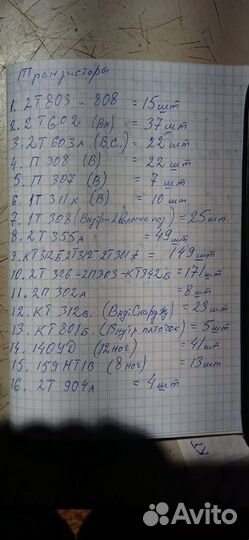 Транзисторы
1. 2Т803 - 808 = 15шт
2. 2Т602 (Вн) = 37шт
3. 2Т603А (В.С.) = 22шт
4. П 308 (В) = 22 шт
5. П 307 (В) = 7 шт
6. 1Т311к (В) = 10 шт
7. 1Т308 (Внутри 2 волоска поз) = 25шт
8. 2Т355А = 49шт
9. КТ312Б 2Т312 - 2Т301 = 149шт
10. 2Т 326 - 2П303 - КТ342Б = 171шт
11. 2П 302А = 8шт
12. КТ 312В. (Вн,Снаружу) = 23шт
13. КТ801Б. (Внутр платочок) = 5шт
14. 140УД (12ног) = 41шт
15. 159НТ1В (8 ног) = 13шт
16. 2Т 904А = 4шт
Avito